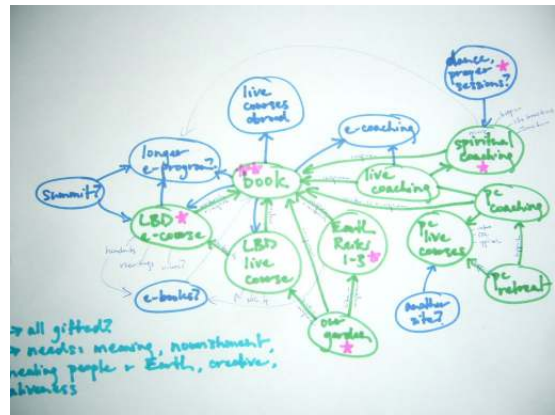 dance,
prayer
sessions?
live
courses
abroad
e-coaching
longer
e-program?
spiritual
coaching
book
live
coaching
summit?
pc
coaching
LBD
e-course
LBD
live
course
Earth
Reiki
1-3
pc
live
courses
pc
retreat
e-books?
another
site?
our
garden
→ all gifted?
→ needs: meaning, nourishment,
healing people + Earth, creative,
aliveness